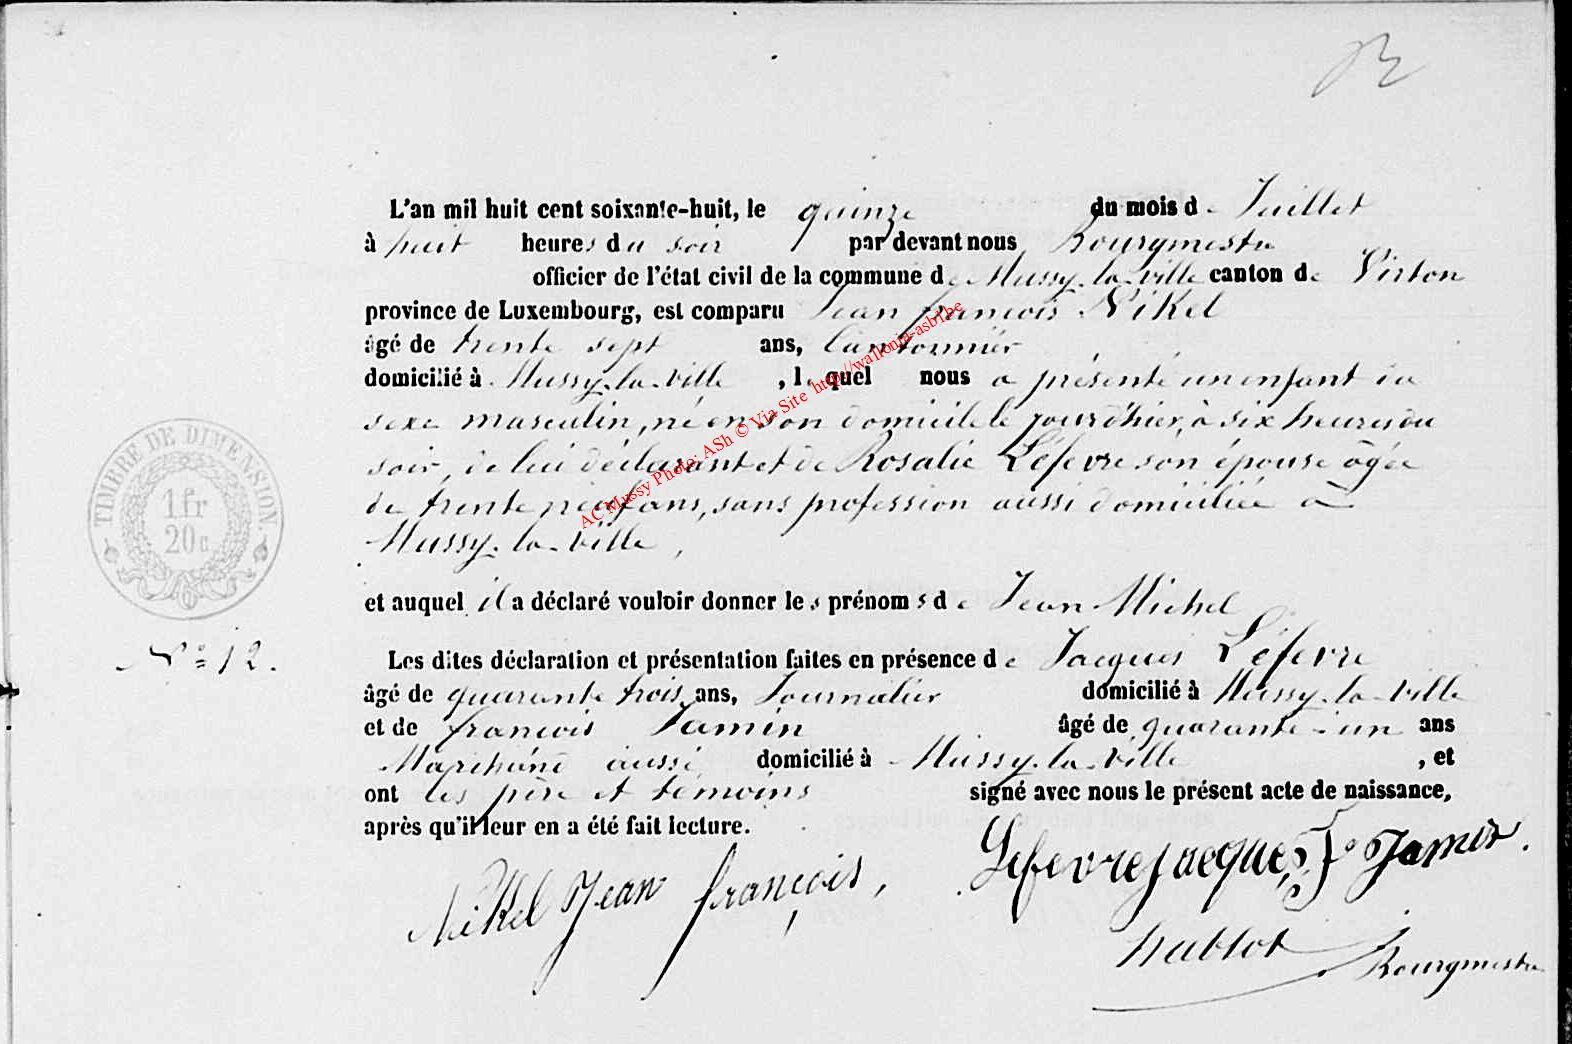 L'an mil huit cent soixante-huit, le quinze du mois de Juillet
à huit heures du soir par devant nous Bourgmestre
officier de l'état civil de la commune de Mussy-la-ville canton de Virton
province de Luxembourg, est comparu Jean françois Nikel
âgé de trente sept ans, Cantonnier
domicilié à Mussy-la-ville, lequel nous a présenté un enfant du
sexe masculin, né en son domicile le jour d'hier, à six heures du
soir, de lui déclarant et de Rosalie Léfevre son épouse âgée
de trente neuf ans, sans profession aussi domiciliée à
Mussy-la-ville,
et auquel il a déclaré vouloir donner les prénoms de Jean Michel
Les dites déclaration et présentation faites en présence de Jacques Léfevre
âgé de quarante trois ans, Journalier domicilié à Mussy-la-ville
et de françois Jamin âgé de quarante-un ans
Marchand aussi domicilié à Mussy-la-ville, et
ont les père et témoins signé avec nous le présent acte de naissance,
après qu'il leur en a été fait lecture.
Nikel Jean françois, Lefevre jacques fs Jamin.
hablot Bourgmestre
TIMBRE DE DIMENSION.
1 fr
20 c
N° 12.
AC Mussy Photo: ASh © Via Site http://wallonia-asbl.be